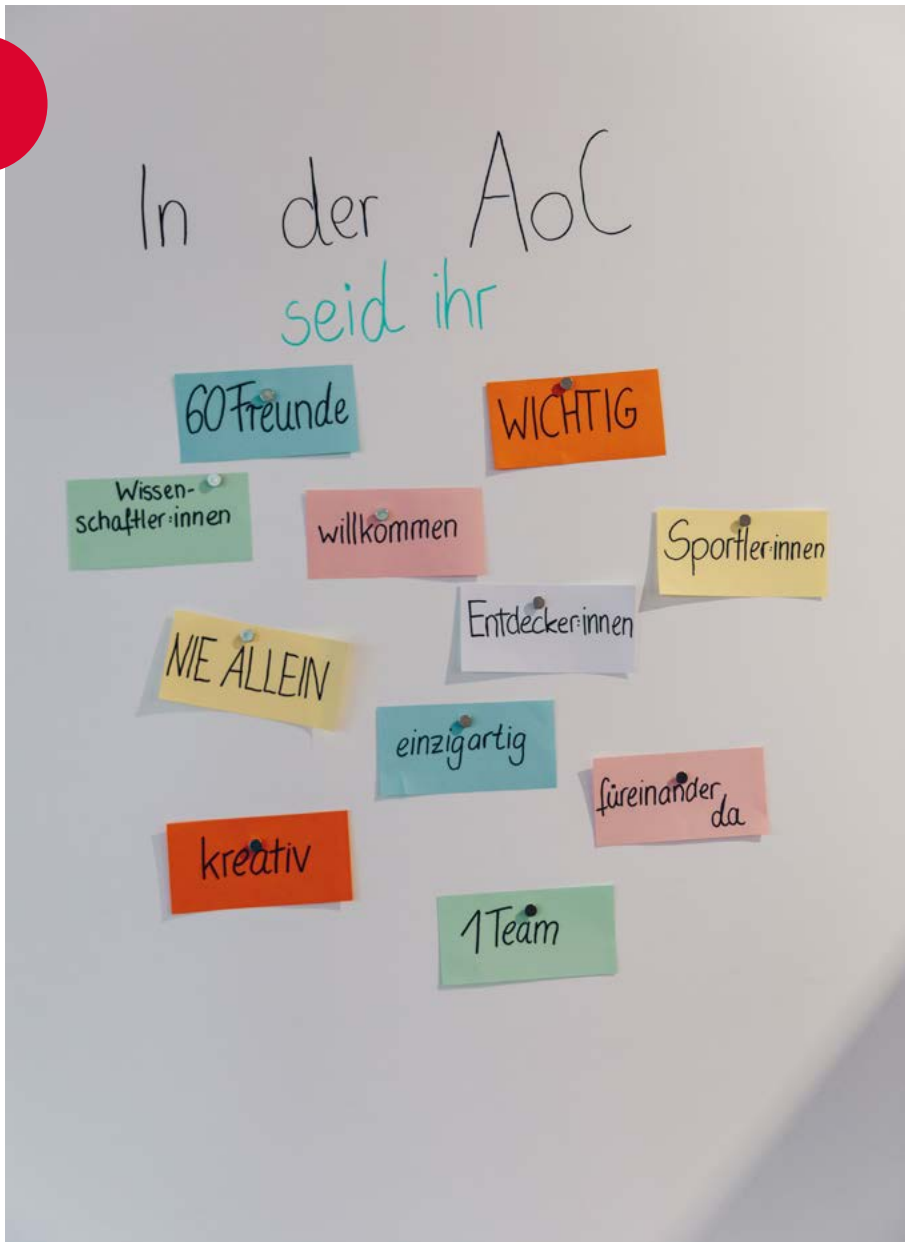 In der AoC
seid ihr
60 Freunde
WICHTIG
Wissen-
schaftler:innen
willkommen
Sportler:innen
Entdecker:innen
NIE ALLEIN
einzigartig
füreinander
da
kreativ
1 Team